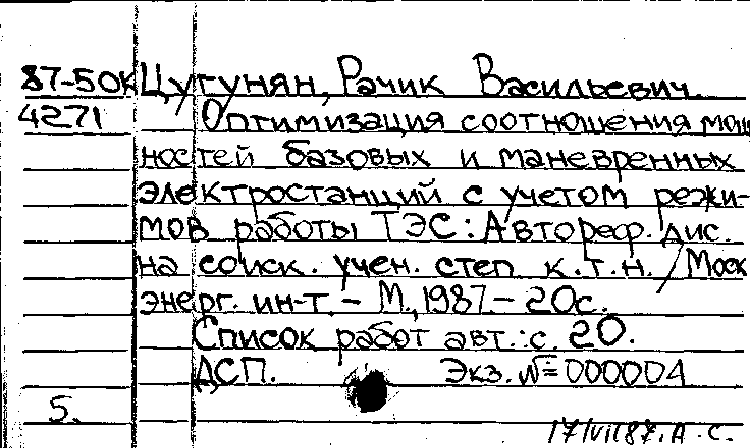 87-50К Цугунян, Рачик Васильевич.
4271 Оптимизация соотношения мощ
ностей базовых и маневренных
электростанций с учетом режи-
мов работы ТЭС: Автореф. дис.
на соиск. учен. степ к.т.н. / Моск
энерг. ин-т. – М., 1987. – 20с.
Список работ авт.: с. 20.
ДСП. Экз. № 000004
5.
17/VII87. А. С.